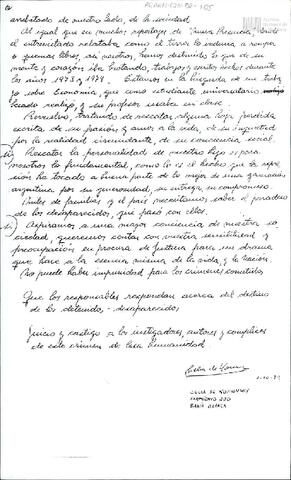 arrebatado de nuestro lado, de la sociedad.
Al igual que en muchos reportajes de
el entrevistado relataba como el terror lo indujo a romper
o quemar libros, así nosotros, hemos de lo que de su
mente y corazón iba brotando, trabajos y escritos hechos durante
los años 1973 y 1974. Estamos en la búsqueda de un traba
jo sobre Economía, que como estudiante universitario
realizó, y su profesor usaba en clase.
tratando de rescatar alguna hoja perdida
escrita de su pasión y amor a la vida, de su inquietud
por la realidad circundante, de su conciencia social.
Rescatar la personalidad de nuestro hijo es para
nosotros lo fundamental, como lo es el hecho que la repre
sión ha tocado a buena parte de lo mejor de una generación
argentina por su generosidad, su entrega, su compromiso.
Miles de familias y el país necesitamos saber el paradero
de los desaparecidos, que pasó con ellos.
Aspiramos a una mayor conciencia de nuestra so
ciedad, queremos contar con vuestra sensibilidad y
preocupación en procura de Justicia para un drama
que hace a la esencia misma de la vida, y la Nación.
No puede haber impunidad para los crímenes cometidos.
Que los responsables respondan acerca del destino
de los detenidos-desaparecidos;
Juicio y castigo a los instigadores, autores y cómplices
de este crimen de Lesa Humanidad.
CELIA DE
BAHIA BLANCA